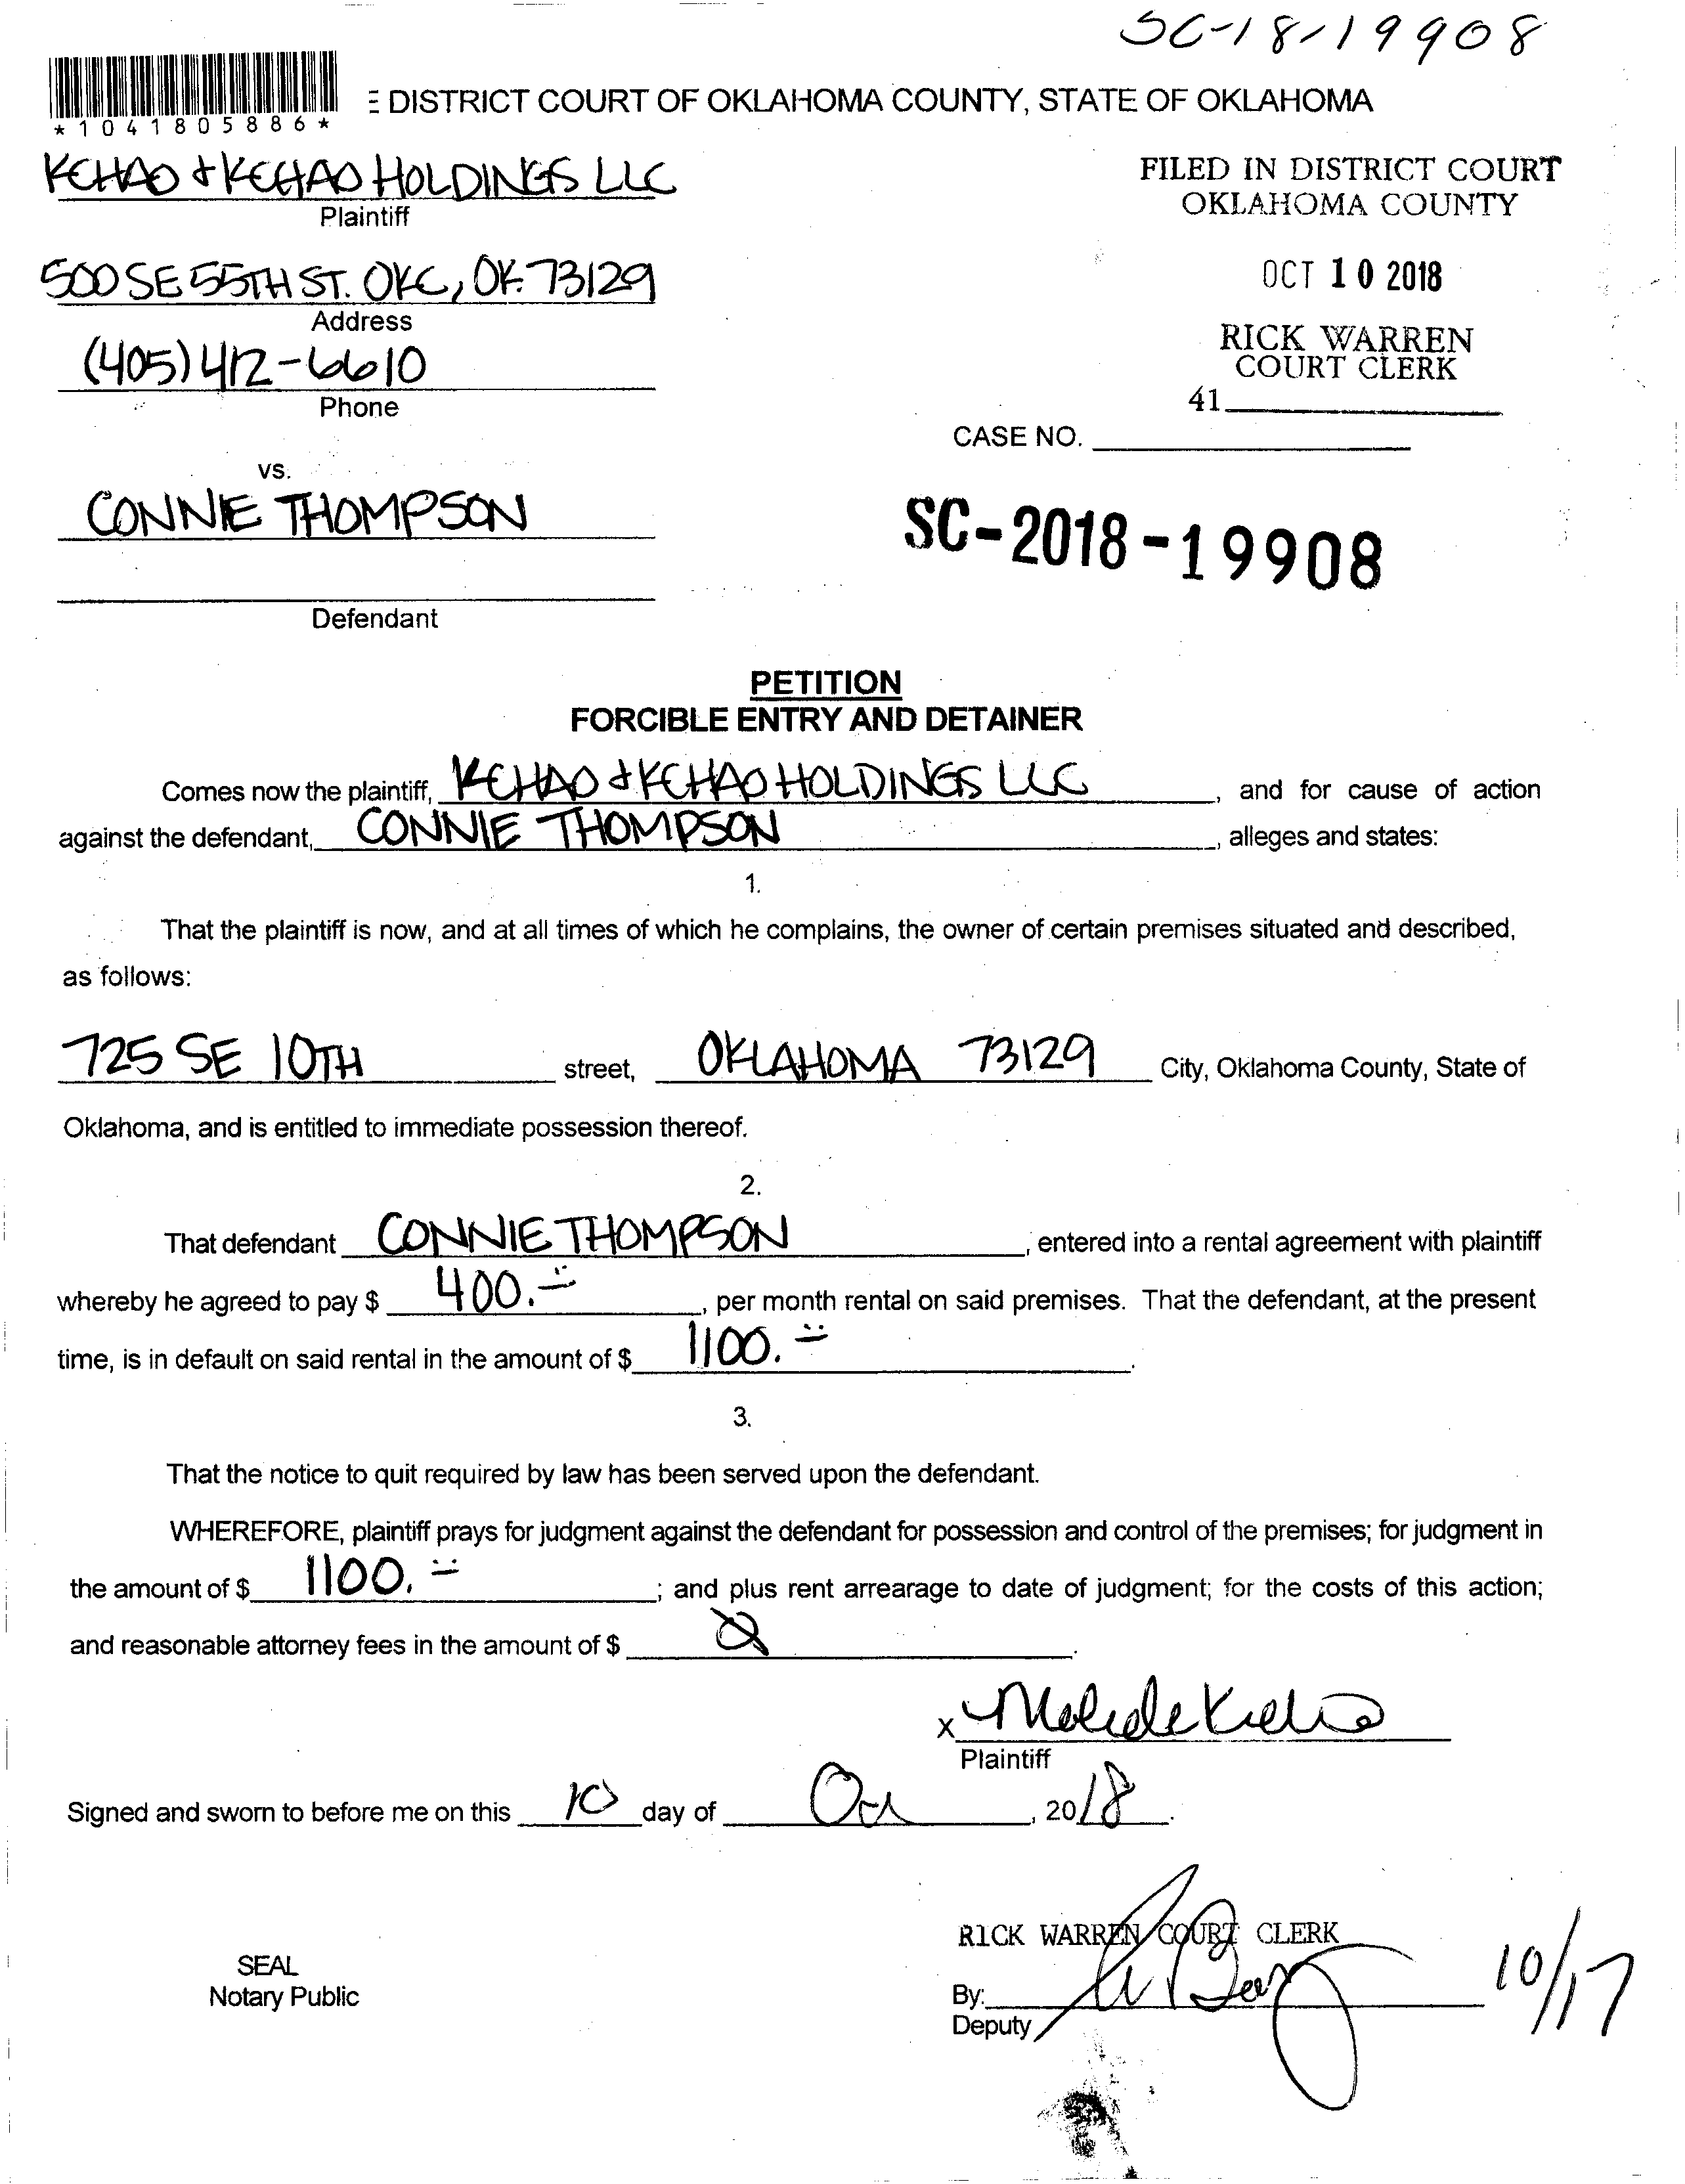 SC-18-19908
*1041805886*
DISTRICT COURT OF OKLAHOMA COUNTY, STATE OF OKLAHOMA
KCHAO & KCHAO HOLDINGS LLC
Plaintiff
FILED IN DISTRICT COURT
OKLAHOMA COUNTY
500 SE 55TH ST. OKC, OK 73129
Address
OCT 10 2018
(405) 412-6610
Phone
RICK WARREN
COURT CLERK
41
CASE NO.
vs.
CONNIE THOMPSON
SC-2018-19908
Defendant
PETITION
FORCIBLE ENTRY AND DETAINER
Comes now the plaintiff, KCHAO & KCHAO HOLDINGS LLC, and for cause of action
against the defendant, CONNIE THOMPSON, alleges and states:
1.
That the plaintiff is now, and at all times of which he complains, the owner of certain premises situated and described,
as follows:
725 SE 10TH street, OKLAHOMA 73129 City, Oklahoma County, State of
Oklahoma, and is entitled to immediate possession thereof.
2.
That defendant CONNIE THOMPSON, entered into a rental agreement with plaintiff
whereby he agreed to pay $ 400.-, per month rental on said premises. That the defendant, at the present
time, is in default on said rental in the amount of $ 1100.-.
3.
That the notice to quit required by law has been served upon the defendant.
WHEREFORE, plaintiff prays for judgment against the defendant for possession and control of the premises; for judgment in
the amount of $ 1100.-; and plus rent arrearage to date of judgment; for the costs of this action;
and reasonable attorney fees in the amount of $ 0.
x
Plaintiff
Signed and sworn to before me on this 10 day of Oct, 2018.
RICK WARREN COURT CLERK
SEAL
Notary Public
By:
Deputy
10/17